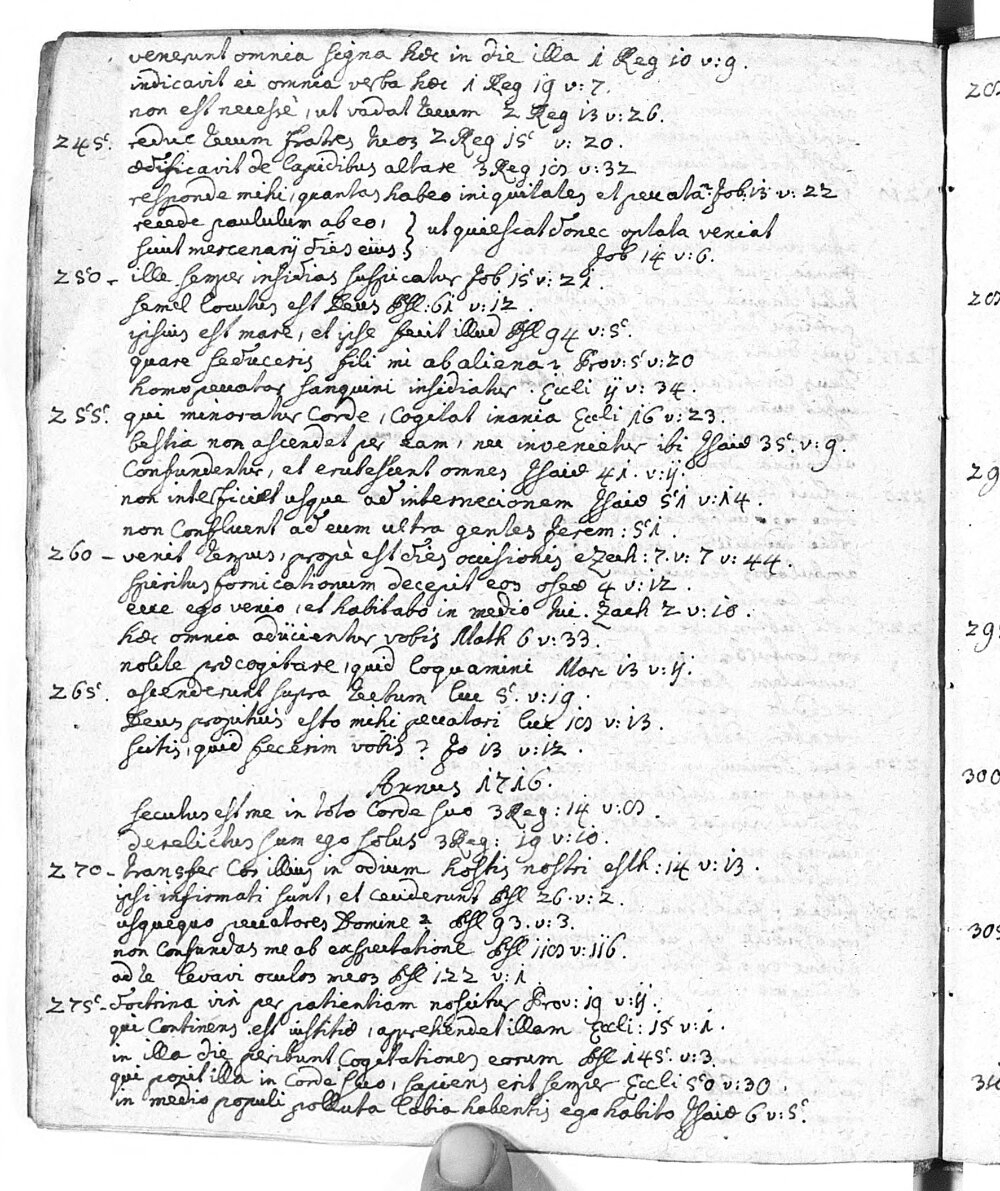 venerunt omnia signa hæc in die illa 1 Reg 10 v: 9.
indicavit ei omnia verba hæc 1 Reg 19 v: 7.
non est necesse, ut vadat tecum 2 Reg 13 v: 26.
245. reduc tecum fratres tuos 2 Reg 15 v: 20.
ædificavit de lapidibus altare 3 Reg 18 v: 32
responde mihi, quantas habeo iniquitates et peccata? Job. 13 v: 22
recede paululum ab eo, } ut quiescat donec optata veniat
sicut mercenarij dies eius } Job 14 v: 6.
250 - ille semper insidias suspicatur Job 15 v: 21
semel locutus est Deus Psl: 61 v: 12.
ipsius est mare, et ipse fecit illud Psl 94 v: 5.
quare seduceris fili mi ab aliena? Prov: 5 v: 20
homo peccator sanguini insidiatur. Eccli ij v: 34.
255. qui minoratur Corde, Cogitat inania Eccli 16 v: 23.
bestia non ascendet per eam, nec invenietur ibi Isaiæ 35. v: 9.
Confundentur, et erubescent omnes Isaiæ 41. v: ij.
non interficiet usque ad internecionem Isaiæ 51 v: 14.
non Confluent ad eum ultra gentes Jerem: 51.
260 - venit tempus, propè est dies occisionis eZech: 7. v: 7 v: 44.
spiritus fornicationum decepit eos oseæ 4 v: 12.
ecce ego venio, et habitabo in medio tui. Zach 2 v: 10.
hæc omnia adiicientur vobis Math 6 v: 33.
nolite præcogitare, quid loquamini Marc 13 v: ij.
265. ascenderunt supra tectum luc 5. v: 19.
Deus propitius esto mihi peccatori luc 18 v: 13.
scitis, quid fecerim vobis? Jo 13 v: 12.
Annus 1716.
secutus est me in toto Corde suo 3 Reg: 14 v: 8.
derelictus sum ego solus 3 Reg: 19 v: 10.
270 - transfer Cor illius in odium hostis nostri esth: 14 v: 13.
ipsi infirmati sunt, et ceciderunt Psl 26. v: 2.
usquequo peccatores Domine? Psl 93. v: 3.
non Confundas me ab exspectatione Psl 118 v: 116.
ad te levavi oculos meos Psl 122 v: 1
275 - doctrina viri per patientiam noscitur Prov: 19 v: ij.
qui Continens est iustitiæ, apprehendet illam Eccli: 15 v: 1.
in illa die peribunt Cogitationes eorum Psl 145. v: 3
qui ponit illa in Corde suo, sapiens erit semper Eccli 50 v: 30.
in medio populi polluta labia habentis ego habito Isaiæ 6 v: 5.